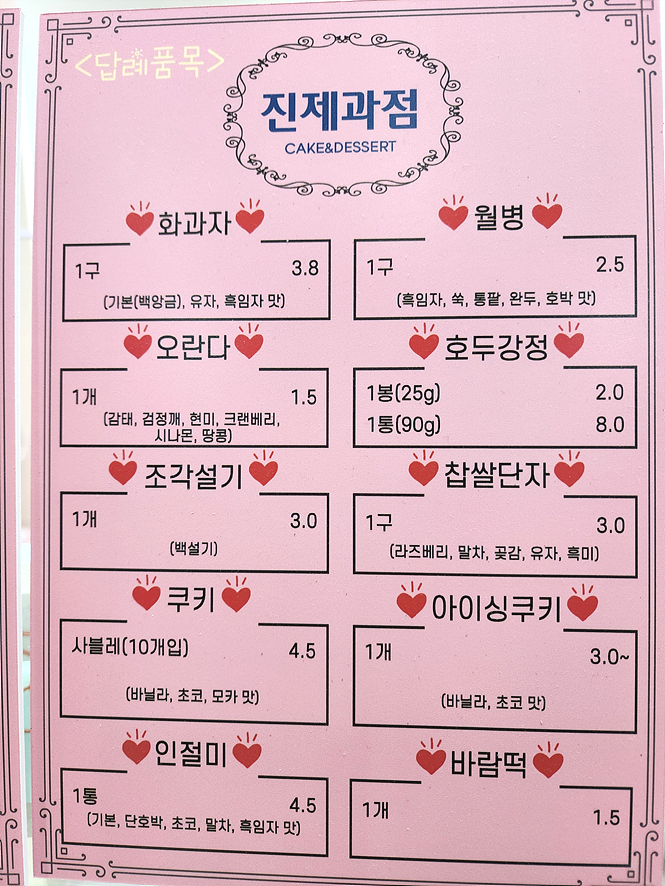 <답례품목>
진제과점
CAKE&DESSERT
화과자
1구 3.8
(기본(백앙금), 유자, 흑임자 맛)
월병
1구 2.5
(흑임자, 쑥, 통팥, 완두, 호박 맛)
오란다
1개 1.5
(감태, 검정깨, 현미, 크랜베리,
시나몬, 땅콩)
호두강정
1봉(25g) 2.0
1통(90g) 8.0
조각설기
1개 3.0
(백설기)
찹쌀단자
1구 3.0
(라즈베리, 말차, 곶감, 유자, 흑미)
쿠키
사블레(10개입) 4.5
(바닐라, 초코, 모카 맛)
아이싱쿠키
1개 3.0~
(바닐라, 초코 맛)
인절미
1통 4.5
(기본, 단호박, 초코, 말차, 흑임자 맛)
바람떡
1개 1.5